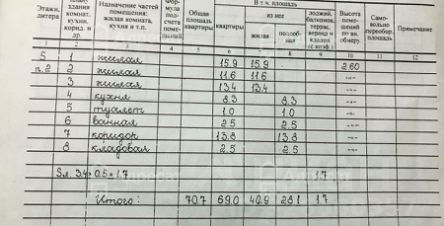 Этажи, литера
плану здания комнат, кухни, корид. и др.
Назначение частей помещения: жилая комната, кухня и т.п.
Формула подсчета
Общая площадь квартиры
В т.ч. площадь
квартиры
из нее
жилая
подсобная
лоджий, балконов, террас, веранд и кладов (с коэф.)
Высота помещений по вн. обмеру
Самовольно переобор. площадь
Примечание
1 2 3 4 5 6 7 8 9 10 11 12
5 1 жилая 15.9 15.9 2.60
п.2 2 жилая 11.6 11.6 -"-
3 жилая 13.4 13.4 -"-
4 кухня 8.3 8.3 -"-
5 туалет 1.0 1.0 -"-
6 ванная 2.5 2.5 -"-
7 коридор 13.8 13.8 -"-
8 кладовая 2.5 2.5 -"-
3.4 0.5 = 1.7 1.7
Итого: 70.7 69.0 40.9 28.1 1.7